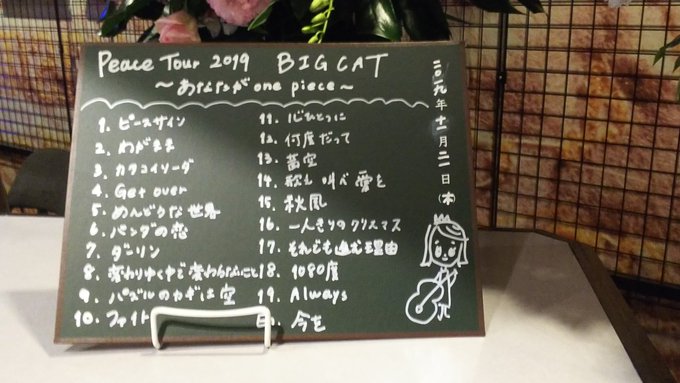 Peace Tour 2019 BIG CAT
～あなたが one piece～
1. ピースサイン
2. わがまま
3. カタコイリーダ
4. Get over
5. めんどうな世界
6. パンダの恋
7. ダーリン
8. 変わりゆく中で変わらないこと
9. パズルのカギは空
10. ファイト
11. 心ひとつに
12. 何度だって
13. 茜空
14. 叫べ 愛を
15. 秋風
16. 一人きりのクリスマス
17. それでも進む理由
18. 1090度
19. Always
今を
二〇一九年十一月二一日(木)